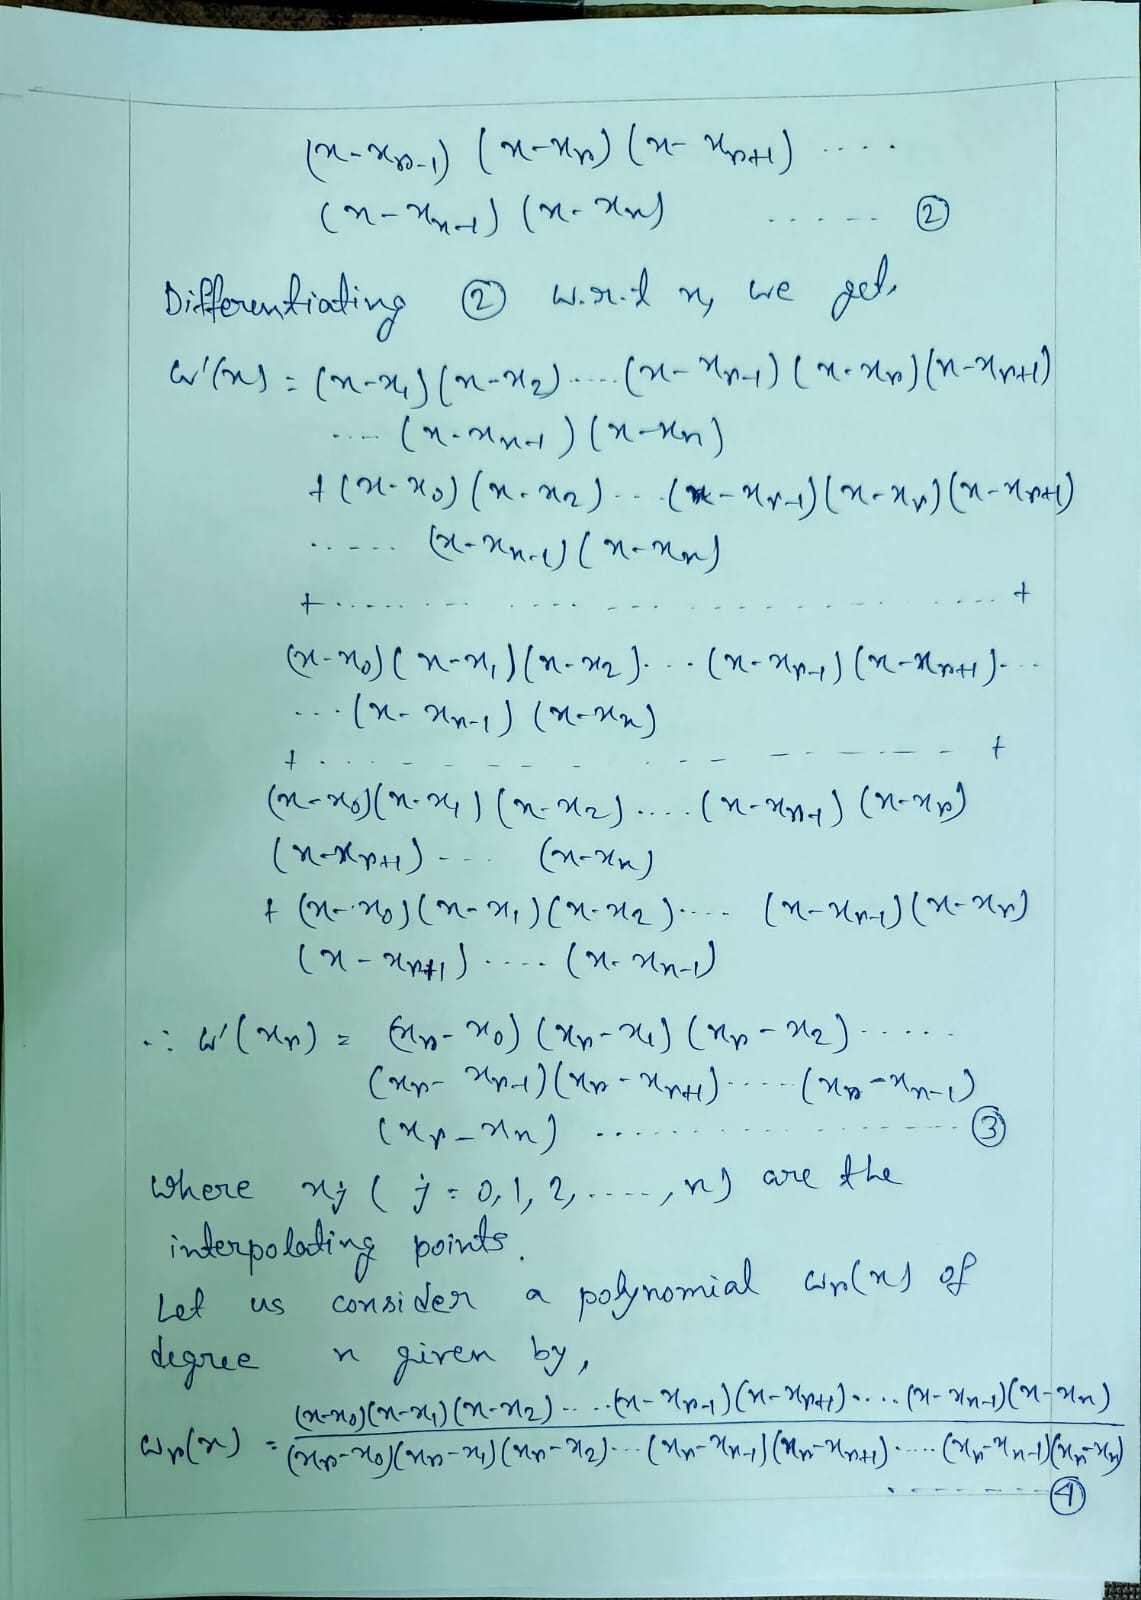 (x-x_{r-1}) (x-x_r) (x-x_{r+1}) ....
(x-x_{n-1}) (x-x_n) ...... ②
Differentiating ② w.r.t x, we get,
ω'(x) = (x-x_1)(x-x_2).....(x-x_{r-1})(x-x_r)(x-x_{r+1})
.... (x-x_{n-1})(x-x_n)
+ (x-x_0)(x-x_2)....(x-x_{r-1})(x-x_r)(x-x_{r+1})
...... (x-x_{n-1})(x-x_n)
+ ........................ +
(x-x_0)(x-x_1)(x-x_2)....(x-x_{r-1})(x-x_{r+1})....
....(x-x_{n-1})(x-x_n)
+ ........................ +
(x-x_0)(x-x_1)(x-x_2).....(x-x_{r-1})(x-x_r)
(x-x_{r+1}).... (x-x_n)
+ (x-x_0)(x-x_1)(x-x_2)..... (x-x_{r-1})(x-x_r)
(x-x_{r+1})..... (x-x_{n-1})
∴ ω'(x_r) = (x_r-x_0)(x_r-x_1)(x_r-x_2)......
(x_r-x_{r-1})(x_r-x_{r+1}).....(x_r-x_{n-1})
(x_r-x_n) .................... ③
where x_j (j = 0, 1, 2, ....., n) are the
interpolating points.
Let us consider a polynomial ω_r(x) of
degree n given by,
ω_r(x) = \frac{(x-x_0)(x-x_1)(x-x_2).....(x-x_{r-1})(x-x_{r+1}).....(x-x_{n-1})(x-x_n)}{(x_r-x_0)(x_r-x_1)(x_r-x_2)....(x_r-x_{r-1})(x_r-x_{r+1}).....(x_r-x_{n-1})(x_r-x_n)}
........ ④